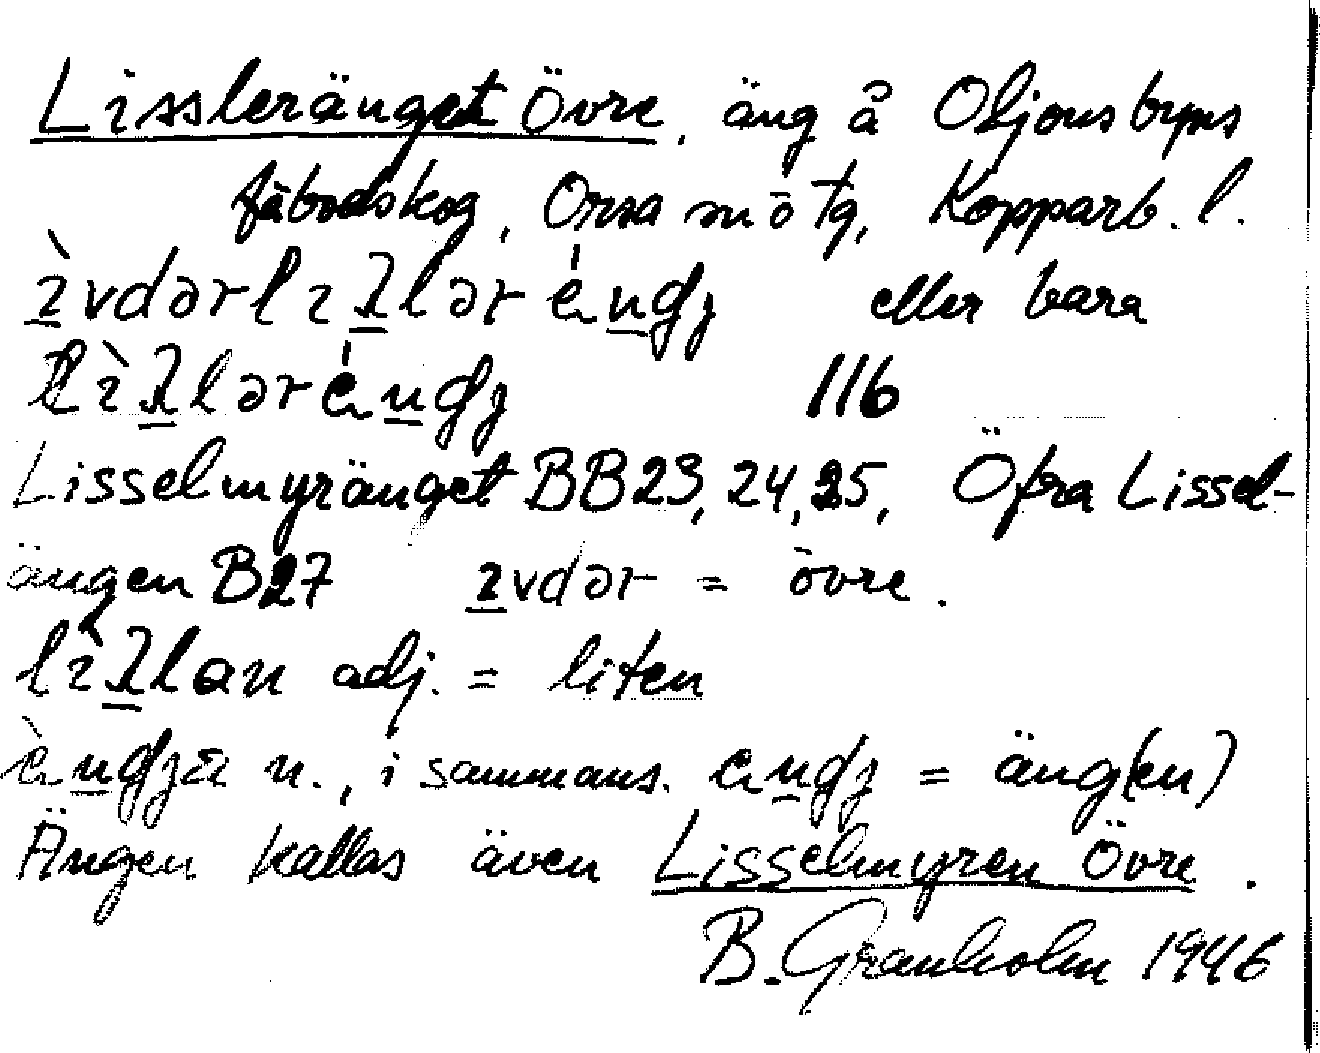 Lissleränget Övre, äng å Oljonsbyns
fäbodskog, Orsa
Kopparb. l.
eller bara
116
Lisselmyränget BB23, 24, 25, Öfra Lissel-
ängen B27 ɪvdər = övre.
adj. = liten
n., i sammans. = äng(en)
Ängen kallas även Lisselmyren Övre.
B. Granholm 1946